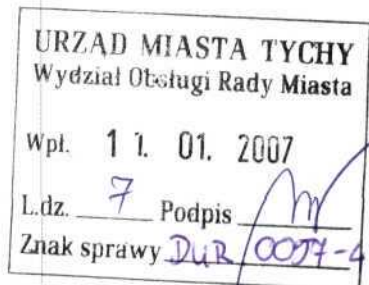 URZĄD MIASTA TYCHY
Wydział Obsługi Rady Miasta
Wpł. 11. 01. 2007
L.dz. 7 Podpis
Znak sprawy DUR